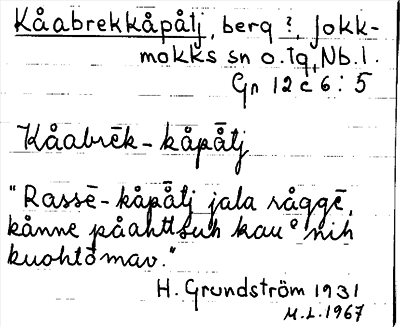 Kåabrekkåpåtj, berg ?, Jokk-
mokks sn o. tg, Nb. l.
Gn 12 c 6 : 5
Kåabrēk-kåpåtj
"Rassē-kåpåtj jala råggē,
kånne påahttsuh kau nih
kuohtomav."
H. Grundström 1931
M.L. 1967